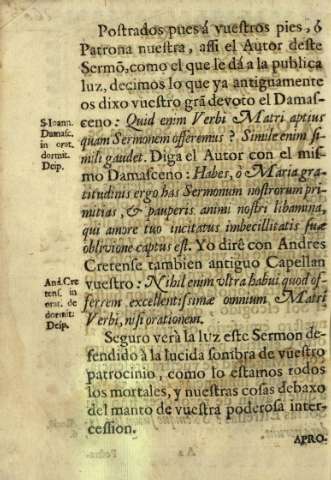 Postrados pues á vuestros pies, ó
Patrona nuestra, assi el Autor deste
Sermõ, como el que le dá a la publica
luz, decimos lo que ya antiguamente
os dixo vuestro grã devoto el Damas-
ceno: Quid enim Verbi Matri aptius
quam Sermonem offeremus? Simile enim si-
mili gaudet. Diga el Autor con el mis-
mo Damasceno: Habes, ó Maria gra-
titudinis ergo has Sermonum nostrorum pri-
mitias, & pauperis animi nostri libamina,
qui amore tuo incitatus imbecillitatis suæ
oblivione captus est. Yo dirè con Andres
Cretense tambien antiguo Capellan
vuestro: Nihil enim vltra habui quod of-
ferrem excellentissimæ omnium, Matri
Verbi, nisi orationem.
Seguro verà la luz este Sermon de-
fendido à la lucida sombra de vuestro
patrocinio, como lo estamos todos
los mortales, y nuestras cosas debaxo
del manto de vuestra poderosa inter-
cession.
APRO-
S. Ioann.
Damasc.
in orat.
dormit.
Deip.
And. Cre
tens. in
orat. de
dormit.
Deip.